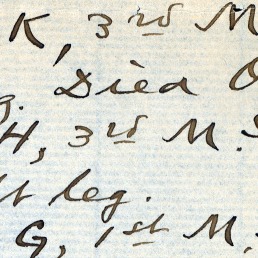 K, 3rd M
g. Died O
H, 3rd M.S
lt leg.
G, 1st M.